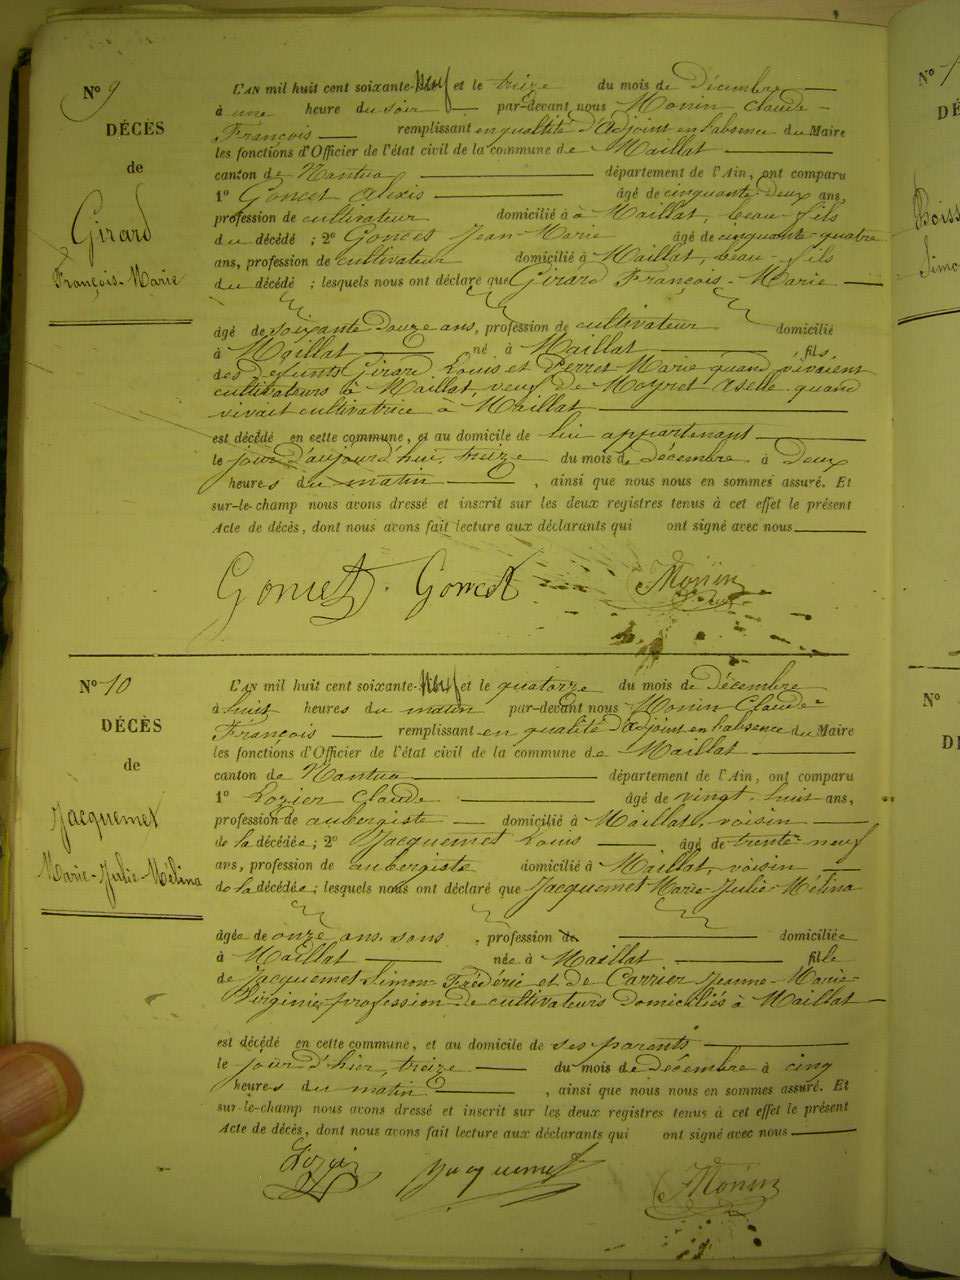 No 9
DÉCÈS
de
Girard
François-Marie
L'AN mil huit cent soixante-neuf et le treize du mois de Décembre
à une heure du soir par-devant nous Monin Claude-
François remplissant en qualité d'Adjoint en l'absence du Maire
les fonctions d'Officier de l'état civil de la commune de Maillat
canton de Nantua département de l'Ain, ont comparu
1o Goncet Alexis âgé de cinquante-deux ans,
profession de cultivateur domicilié à à Maillat, beau-fils
du décédé ; 2e Goncet Jean-Marie âgé de cinquante-quatre
ans, profession de cultivateur domicilié à Maillat, beau-fils
du décédé ; lesquels nous ont déclaré que Girard François-Marie
âgé de soixante-douze ans, profession de cultivateur domicilié
à Maillat né à Maillat fils
des defunts Girard Louis et Perret Marie quand vivaient
cultivateurs à Maillat, veuf de Moyret quand
vivait cultivatrice à Maillat
est décédé en cette commune, et au domicile de lui appartenant
le jour d'aujourd'hui, treize du mois de Décembre à Deux
heures du matin , ainsi que nous nous en sommes assuré. Et
sur-le-champ nous avons dressé et inscrit sur les deux registres tenus à cet effet le présent
Acte de décès, dont nous avons fait lecture aux déclarants qui ont signé avec nous
Goncet. Goncet Monin
No 10
DÉCÈS
de
Jacquemet
Marie-Julie-Mélina
L'AN mil huit cent soixante-neuf et le quatorze du mois de Décembre
à huit heures du matin par-devant nous Monin Claude-
François remplissant en qualité d'Adjoint en l'absence du Maire
les fonctions d'Officier de l'état civil de la commune de Maillat
canton de Nantua département de l'Ain, ont comparu
1o Lozier Claude âgé de vingt-huit ans,
profession de aubergiste domicilié à Maillat, voisin
de la décédée; 2e Jacquemet Louis âgé de trente-neuf
ans, profession de aubergiste domicilié à Maillat, voisin
de la décédée; lesquels nous ont déclaré que Jacquemet Marie-Julie-Mélina
âgée de onze ans, sans , profession de domiciliée
à Maillat née à Maillat fille
de Jacquemet Simon-Frédéric et de Carrier Jeanne-Marie-
Virginie, profession de cultivateurs domiciliés à Maillat
est décédé en cette commune, et au domicile de ses parents
le jour d'hier, treize du mois de Décembre à cinq
heures du matin , ainsi que nous nous en sommes assuré. Et
sur-le-champ nous avons dressé et inscrit sur les deux registres tenus à cet effet le présent
Acte de décès, dont nous avons fait lecture aux déclarants qui ont signé avec nous
Lozier Jacquemet Monin
No
No